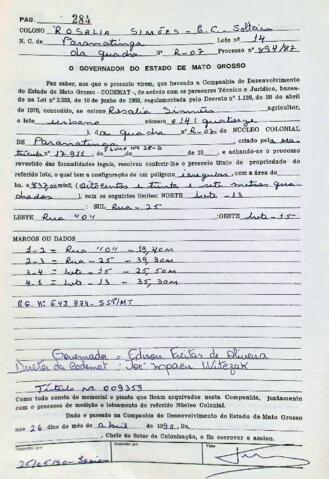 PAG. 284
COLONO ROSALIA SIMÕES - E.C. Solteira
N. C. de Paranatinga Lote n.o 14
da quadra N.o R-07 Processo n.o 894/87
O GOVERNADOR DO ESTADO DE MATO GROSSO
Faz saber, aos que o presente virem, que havendo a Companhia de Desenvolvimento
do Estado de Mato Grosso - CODEMAT -, de acôrdo com os pareceres Técnico e Jurídico, baseados
na Lei n.o 2.033, de 10 de junho de 1963, regulamentada pelo Decreto n.o 1.138, de 20 de abril
de 1970, concedido, ao colono Rosalia Simões agricultor,
o lote urbano número 14 ( quatorze
) (da quadra N.o R-07 do NÚCLEO COLONIAL
DE Paranatinga, criado pela Ma-
tricula 17.911, de Livro nº 28-b de 19 , e achando-se o processo
revestido das formalidades legais, resolveu conferir-lhe o presente título de propriedade do
referido lote, o qual tem a configuração de um polígono irregular, com a área de
ha 837,00 mts2, (oitocentos e trinta e sete metros qua-
drados), com os seguintes limites: NORTE Lote - 13
: SUL Rua - 25
LESTE Rua "04" :OESTE Lote - 15
MARCOS OU DADOS
1-2 = Rua "04" - 19,40m
2-3 = Rua - 25 - 39,30m
3-4 = Lote - 15 - 25,50m
4-1 = Lote - 13 - 35,30m
R.G. Nº 643 874 - SSP/MT
Governador - Edison Freitas de Oliveira
Diretor da Codemat - José
Título Nº 009359
Como tudo consta do memorial e planta que ficam arquivados nesta Companhia, juntamente
com o processo de medição e loteamento do referido Núcleo Colonial.
Dado e passado na Companhia de Desenvolvimento do Estado de Mato Grosso
aos 26 dias do mês de abril de 1990. Eu,
, Chefe do Setor de Colonização, o fiz escrever e assino.
Conferido Visto
25/05/90